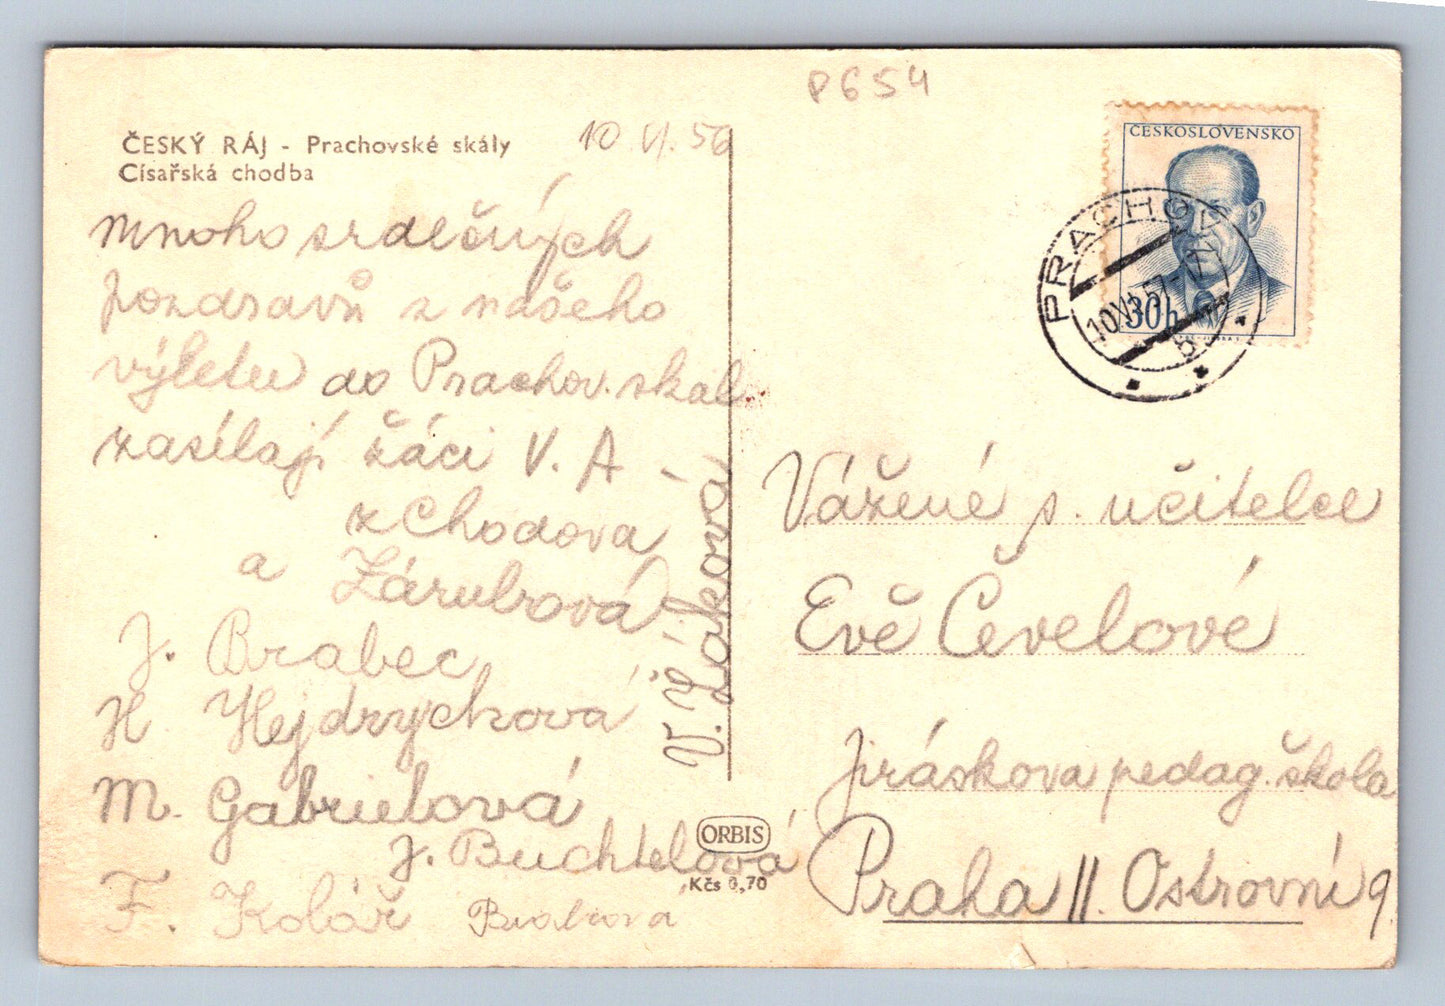 P654
ČESKÝ RÁJ - Prachovské skály
Císařská chodba
10. VI. 56
Mnoho srdečných
pozdravů z našeho
výletu do Prachov. skal
zasílají žáci V. A -
z Chodova
a Zárubová
J. Brabec
H Hejdrychová
M. Gabrielová
J. Buchtelová
F. Kolář
V. Žáková
ORBIS
Kčs 0,70
ČESKOSLOVENSKO
30h
PRACHOV
10.VI.57-17
Vážené s. učitelce
Evě Čevelové
Jiráskova pedag. škola
Praha II. Ostrovní 9